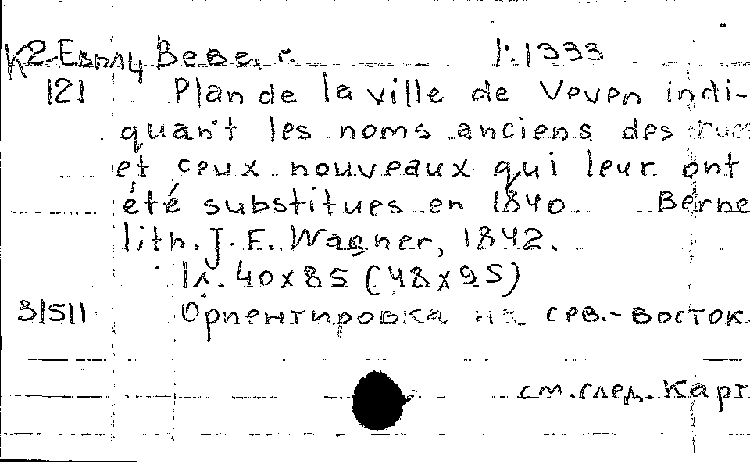 К2-Евпл4 Веве, г. 1:1333
121 Plan de la ville de Veven indi-
quant les noms anciens des rues
et ceux nouveaux qui leur ont
été substitues en 1840 Berne
lith. J. E. Wagner, 1842.
1л. 40x85 (48x95)
31511 Ориентировка на сев.-восток.
см. след. карт